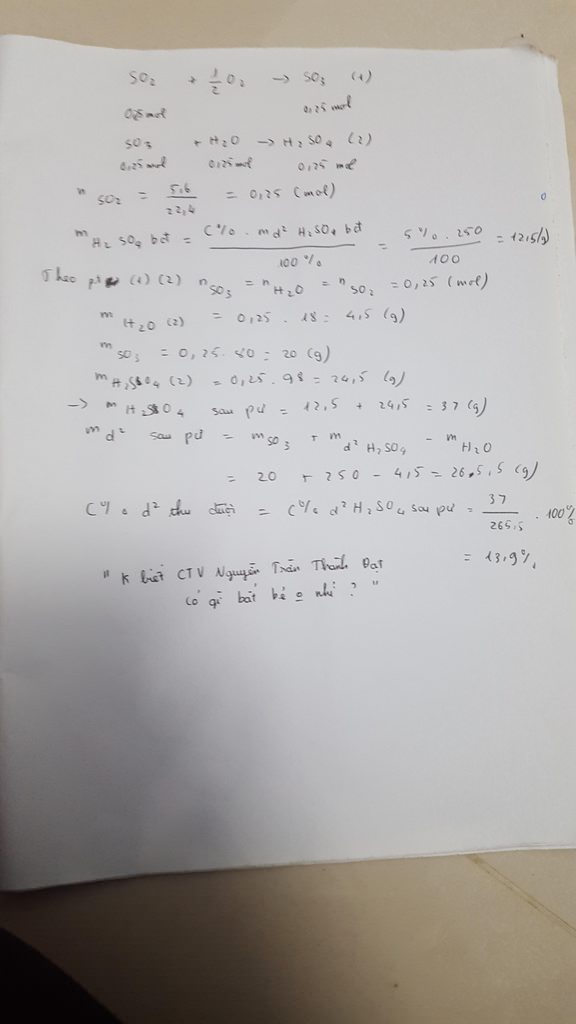 SO2 + 1/2 O2 → SO3 (1)
0,25 mol 0,25 mol
SO3 + H2O → H2SO4 (2)
0,25 mol 0,25 mol 0,25 mol
n SO2 = 5,6/22,4 = 0,25 (mol)
m H2SO4 bđ = C% . md² H2SO4 bđ / 100% = 5% . 250 / 100 = 12,5(g)
Theo pt (1) (2) n SO3 = n H2O = n SO2 = 0,25 (mol)
m H2O (2) = 0,25 . 18 = 4,5 (g)
m SO3 = 0,25 . 80 = 20 (g)
m H2SO4 (2) = 0,25 . 98 = 24,5 (g)
→ m H2SO4 sau pư = 12,5 + 24,5 = 37 (g)
m d² sau pư = m SO3 + m d² H2SO4 - m H2O
= 20 + 250 - 4,5 = 26,5,5 (g)
C% d² thu được = C% d² H2SO4 sau pư = 37/265,5 . 100%
= 13,9%
" K biết CTV Nguyễn Trần Thành Đạt
có gì bắt bẻ o nhỉ ? "